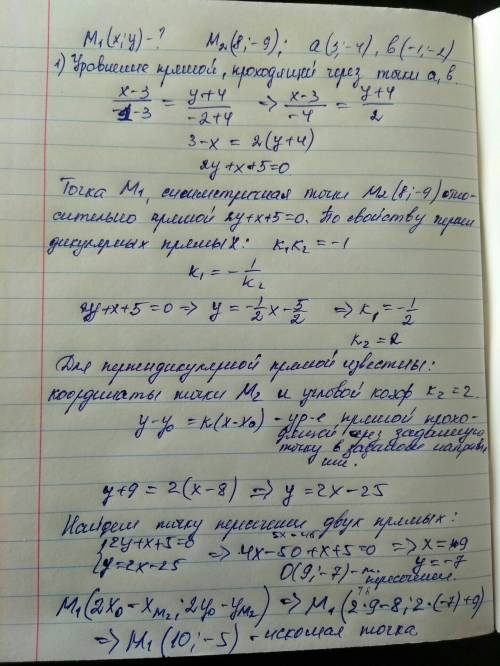 M₁(x; y) - ? M₂(8; -9); a(3; -4), в(-1; -2)
1) Уровнение прямой, проходящий через точки a, в.
(x-3)/(-1-3) = (y+4)/(-2+4) => (x-3)/(-4) = (y+4)/2
3-x = 2(y+4)
2y+x+5=0.
Точка M₁, симметричная точки M₂(8; -9) отно-
сительно прямой 2y+x+5=0. По свойству перпен
дикулярных прямых: к₁к₂ = -1
к₁ = -1/к₂
2y+x+5=0 => y = -1/2 x - 5/2 => к₁ = -1/2
к₂ = 2
Для перпендикулярной прямой известны:
координаты точки M₂ и угловой коэф к₂ = 2.
y-y₀ = к(x-x₀) - ур-е прямой прохо-
дящей через заданную
точку в заданном направле
нии.
y+9 = 2(x-8) => y = 2x-25
Найдем точку пересечения двух прямых:
5x = 45
{2y+x+5=0 => 4x-50+x+5=0 => x=9
{y=2x-25 O(9; -7) - т. y=-7
пересечения.
M₁(2x₀ - x_M₂; 2y₀ - y_M₂) => M₁(2·9-8; 2·(-7)+9)
=> M₁(10; -5) - искомая точка